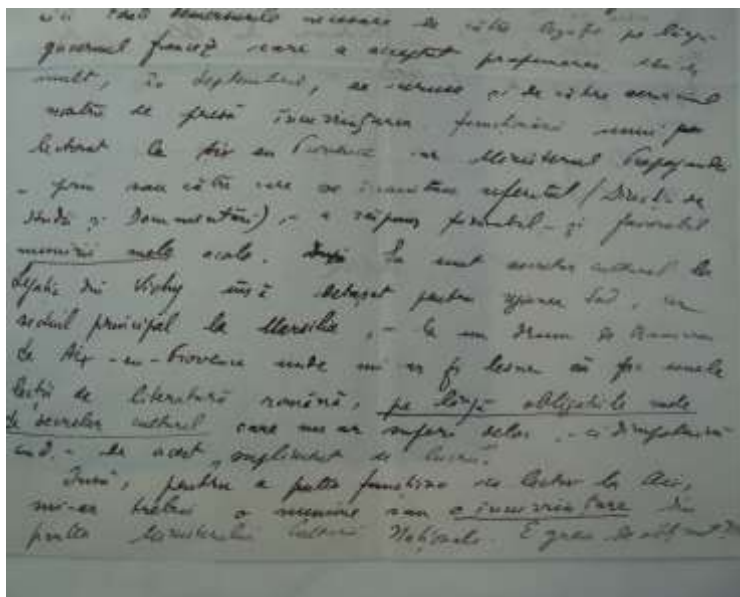 toate demersurile necesare de către Legație pe lângă
guvernul francez care a acceptat propunerea
mult, în Septembrie, se ceruse și de către serviciul
nostru de presă încuviințarea funcționării unui
lectorat la Aix en Provence iar Ministerul Propagandei
- prin sau către care se înaintase referatul (Direcția de
Studii și Documentare), - a răspuns favorabil
numirii mele acolo. Eu sunt secretar cultural la
Legația din Vichy însă detașat pentru zona Sud, cu
sediul principal la Marsilia, - la un drum de
de Aix-en-Provence unde mi-ar fi lesne să fac unele
lecții de literatură română, pe lângă obligațiile mele
de secretar cultural care nu ar suferi deloc, - ci dimpotrivă
- de acest supliment de lucru.
Însă, pentru a putea funcționa ca lector la Aix,
mi-ar trebui o numire sau o încuviințare din
partea Ministerului Culturii Naționale. E greu de obținut?